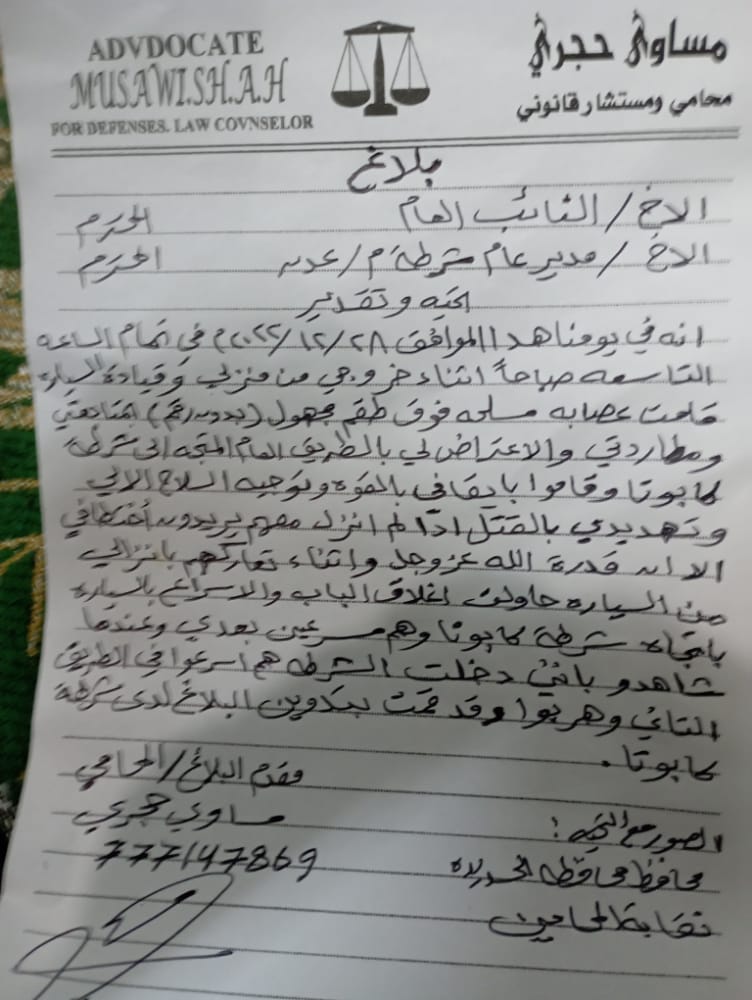 ADVDOCATE
MUSAWI.SH.A.H
FOR DEFENSES. LAW COVNSELOR
مساوى حجري
محامي ومستشار قانوني
بلاغ
الاخ / النائب العام المحترم
الاخ / مدير عام شرطة م/عدن المحترم
تحيه وتقدير
انه في يومنا هدا الموافق ٢٠٢٢/١٢/٢٨م في تمام الساعه
التاسعه صباحاً اثناء خروجي من منزلي وقيادة السياره
قامت عصابه مسلحه فوق طقم مجهول (بدون رقم) بمتابعتي
ومطاردتي والاعتراض لي بالطريق العام المتجه الى شرطة
كابوتا وقاموا بايقافي بالقوه وتوجيه السلاح الالي
وتهديدي بالقتل اذا لم انزل معهم يريدون أختطافي
الا ان قدرة الله عزوجل واثناء تعاركهم بانزالي
من السياره حاولت اغلاق الباب والاسراع بالسياره
باتجاه شرطة كابوتا وهم مسرعين بعدي وعندما
شاهدو بانني دخلت الشرطه هم أسرعوا في الطريق
الثاني وهربوا وقد قمت بتدوين البلاغ لدى شرطة
كابوتا.
مقدم البلاغ/المحامي
مساوي حجري
777147869
الصور مع التحيه:
محافظ محافظه الحديده
نقابة المحامين